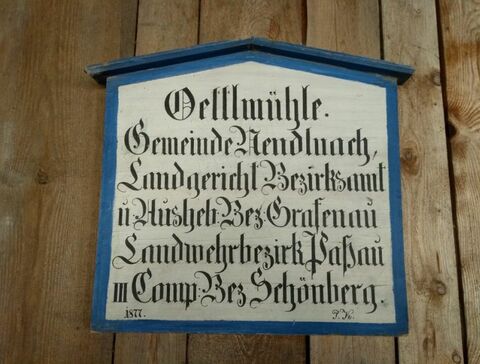 Oettlmühle.
Gemeinde Nendlnach,
Landgericht Bezirksamt
u. Ausheb: Bez: Grafenau
Landwehrbezirk Paßau
III Comp: Bez Schönberg.
1877. P. K.